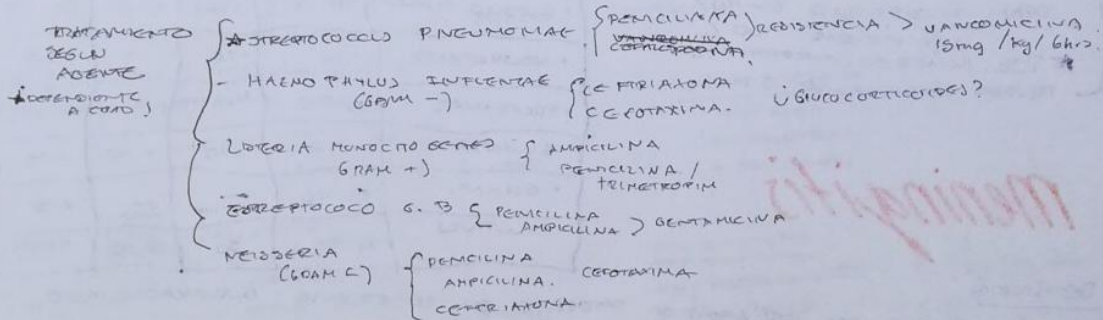 TRATAMIENTO
SEGUN
AGENTE
DEPENDIENTE
A COMO,
STREPTOCOCCUS PNEUMONIAE { PENICILINA } RESISTENCIA > VANCOMICINA
CEFTRIAXONA. 15mg / Kg / 6hrs.
- HAEMOPHYLUS INFLUENZAE { CEFTRIAXONA
(GRAM -) CEFOTAXIMA. ¿GLUCOCORTICOIDES?
LISTERIA MONOCITOGENES { AMPICILINA
GRAM +) PENICILINA /
TRIMETROPIM
ESTREPTOCOCO G. B { PENICILINA
AMPICILINA > GENTAMICINA
NEISSERIA { PENICILINA
(GRAM -) AMPICILINA. CEFOTAXIMA
CEFTRIAXONA.
meningitis